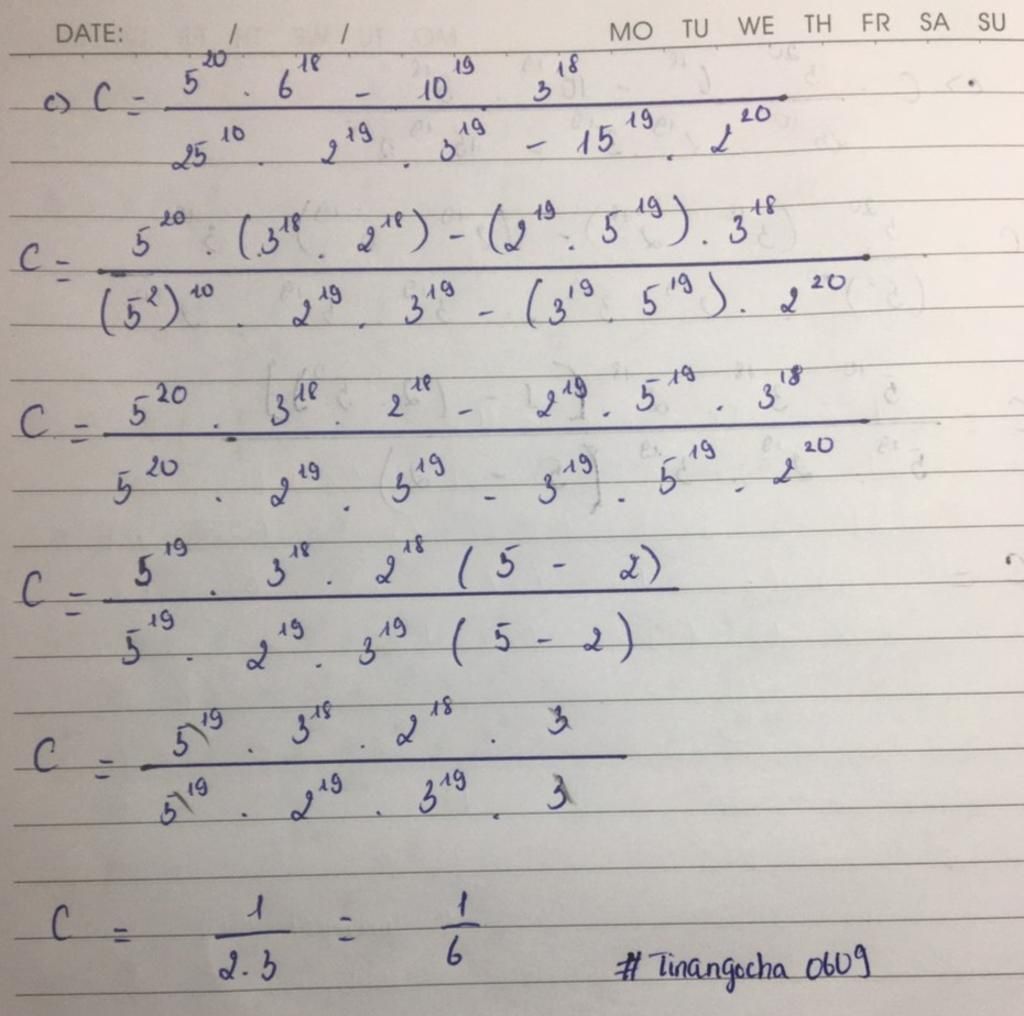 DATE: / / MO TU WE TH FR SA SU
c) C = \frac{5^{20} . 6^{18} - 10^{19} . 3^{18}}{25^{10} . 2^{19} . 3^{19} - 15^{19} . 2^{20}}
C = \frac{5^{20} . (3^{18} . 2^{18}) - (2^{19} . 5^{19}) . 3^{18}}{(5^{2})^{10} . 2^{19} . 3^{19} - (3^{19} . 5^{19}) . 2^{20}}
C = \frac{5^{20} . 3^{18} . 2^{18} - 2^{19} . 5^{19} . 3^{18}}{5^{20} . 2^{19} . 3^{19} - 3^{19} . 5^{19} . 2^{20}}
C = \frac{5^{19} . 3^{18} . 2^{18} (5 - 2)}{5^{19} . 2^{19} . 3^{19} (5 - 2)}
C = \frac{5^{19} . 3^{18} . 2^{18} . 3}{5^{19} . 2^{19} . 3^{19} . 3}
C = \frac{1}{2.3} = \frac{1}{6}
# Tinangocha 0609